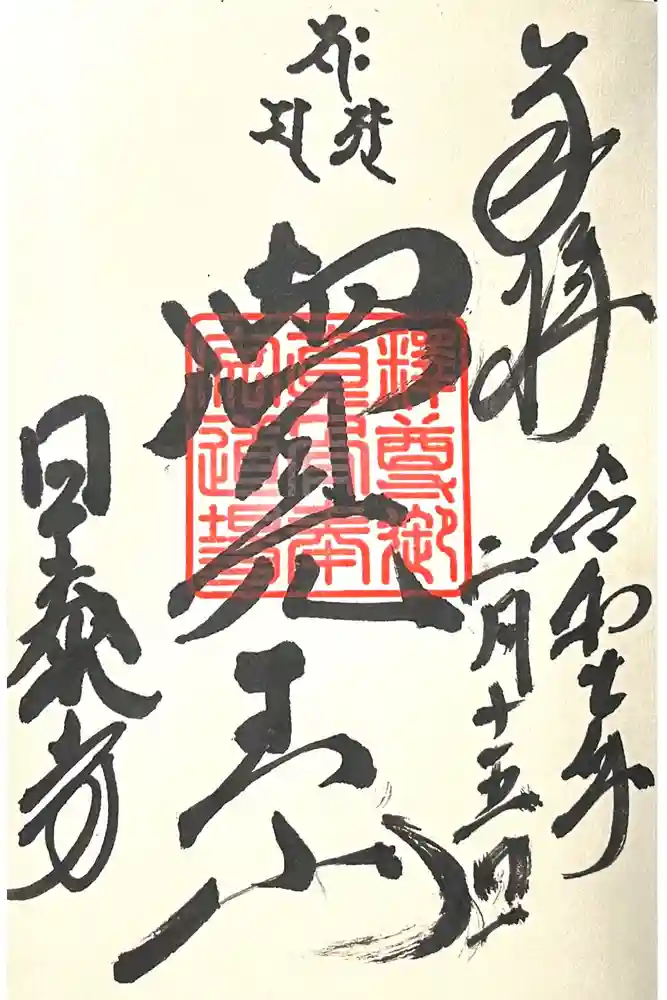 奉拝
令和七年
二月十五日
覺王山
日泰寺
釋尊御
真身奉
安道場